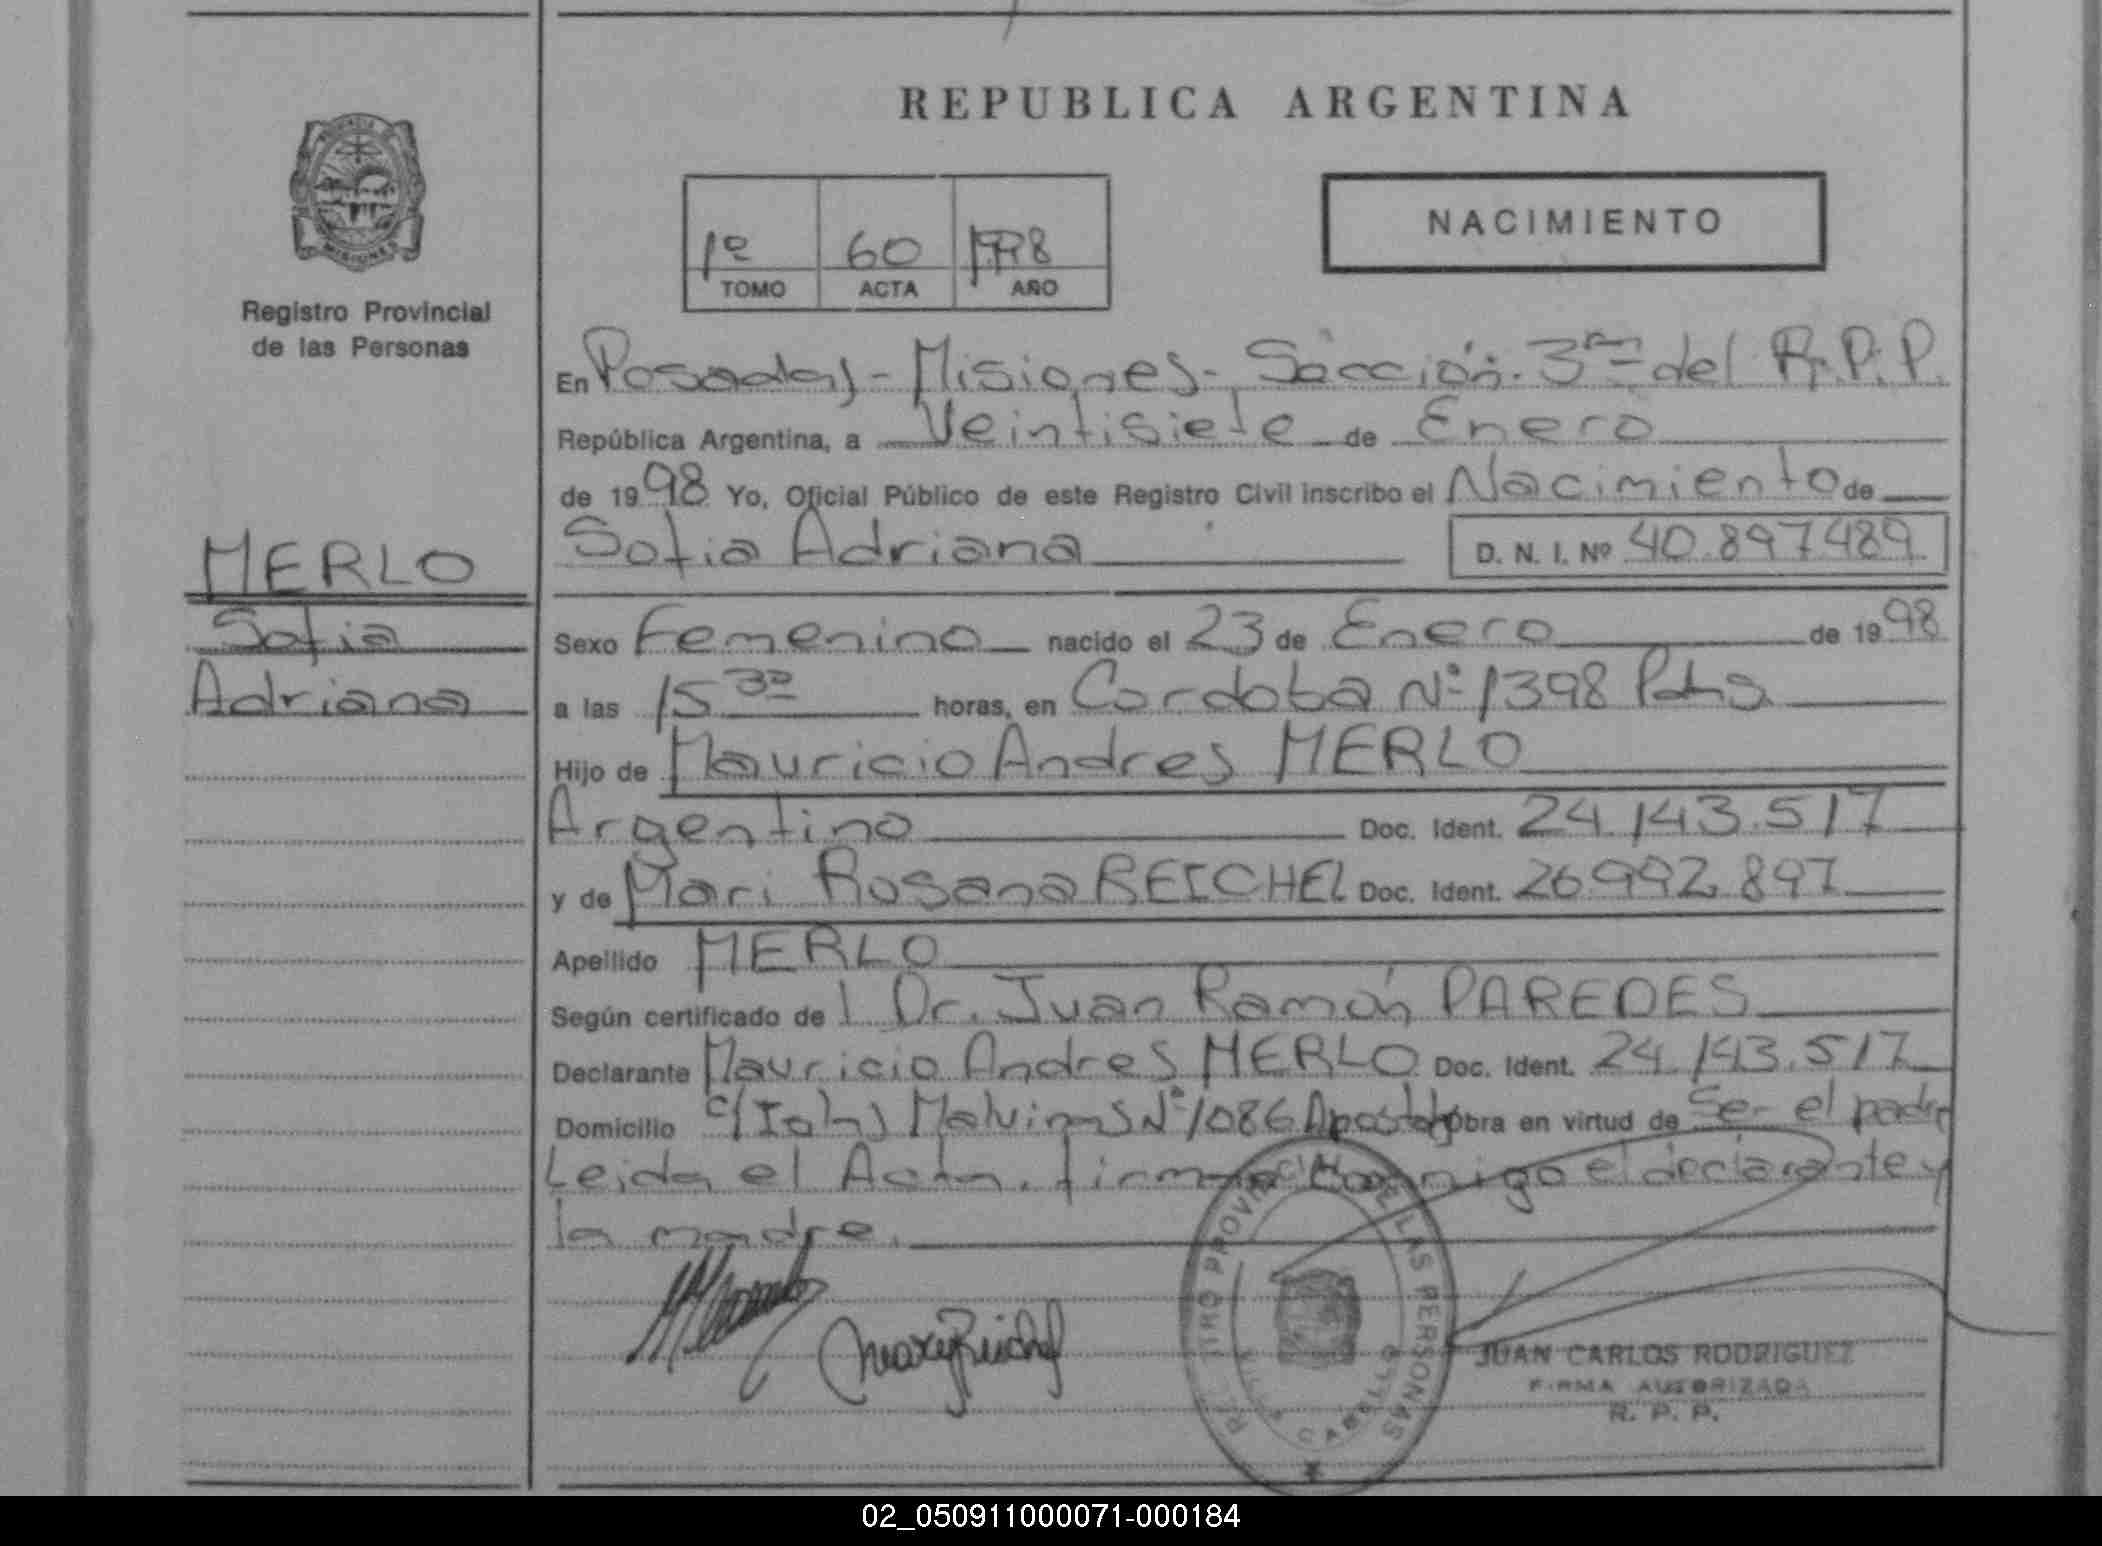 REPUBLICA ARGENTINA
PROVINCIA DE
MISIONES
Registro Provincial
de las Personas
1º 60 1998
TOMO ACTA AÑO
NACIMIENTO
En Posadas - Misiones - Sección 3ra del R.P.P.
República Argentina, a Veintisiete de Enero
de 1998 Yo, Oficial Público de este Registro Civil inscribo el Nacimiento de
Sofia Adriana D. N. I. Nº 40.897.489
MERLO
Sofia
Adriana
Sexo Femenino nacido el 23 de Enero de 1998
a las 15 30 horas, en Cordoba Nº 1398 Pdas
Hijo de Mauricio Andres MERLO
Argentino Doc. Ident. 24.143.517
y de Mari Rosana REICHEL Doc. Ident. 26.992.897
Apellido MERLO
Según certificado del Dr. Juan Ramón PAREDES
Declarante Mauricio Andres MERLO Doc. Ident. 24.143.517
Domicilio c/ Islas Malvinas Nº 1086 Apostoles Obra en virtud de Ser el padre
Leida el Acta, firma conmigo el declarante y
la madre.
Mary Reichel
PROVINCIAL DE LAS PERSONAS
JUAN CARLOS RODRIGUEZ
FIRMA AUTORIZADA
R. P. P.
02_050911000071-000184